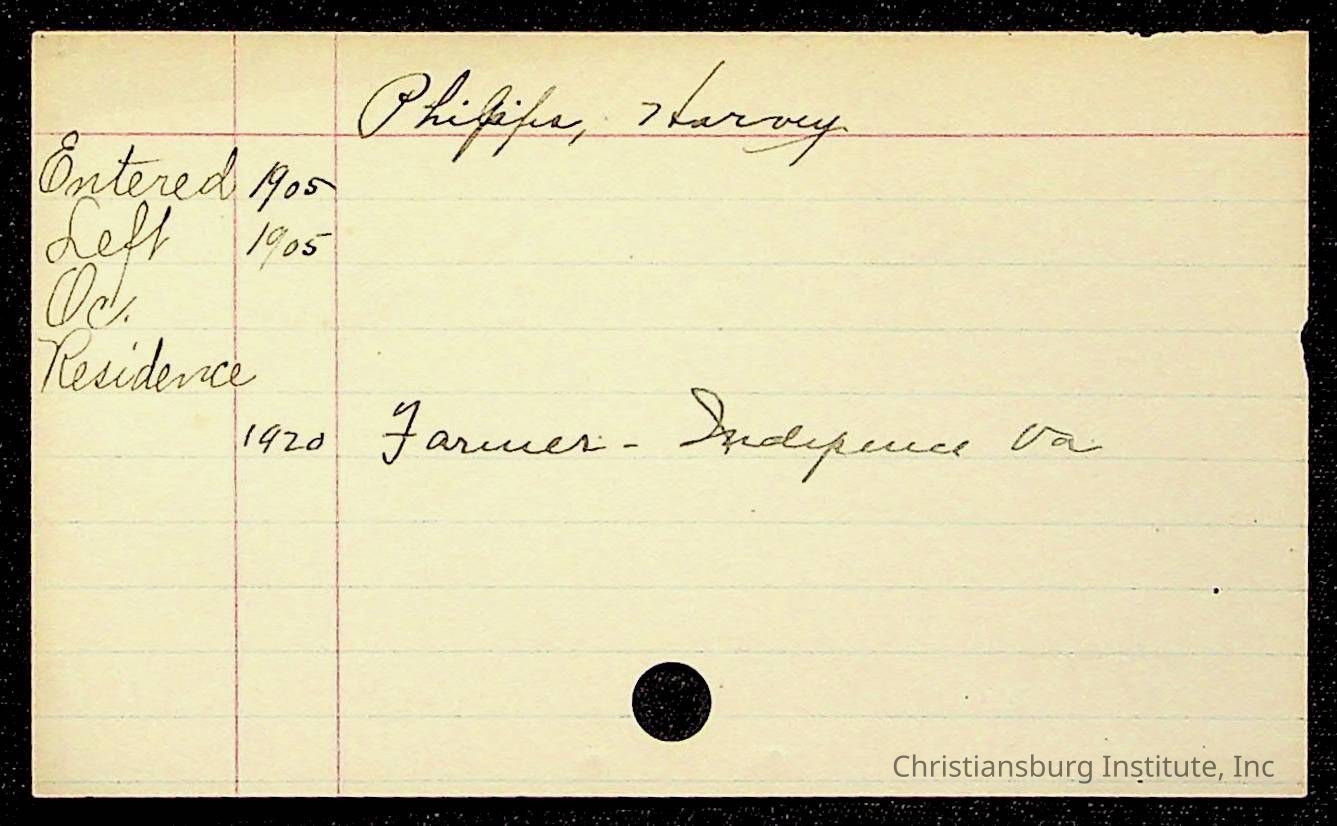 Phipps, Harvey
Entered 1905
Left 1905
Oc.
Residence
1920 Farmer - Indepence Va
Christiansburg Institute, Inc